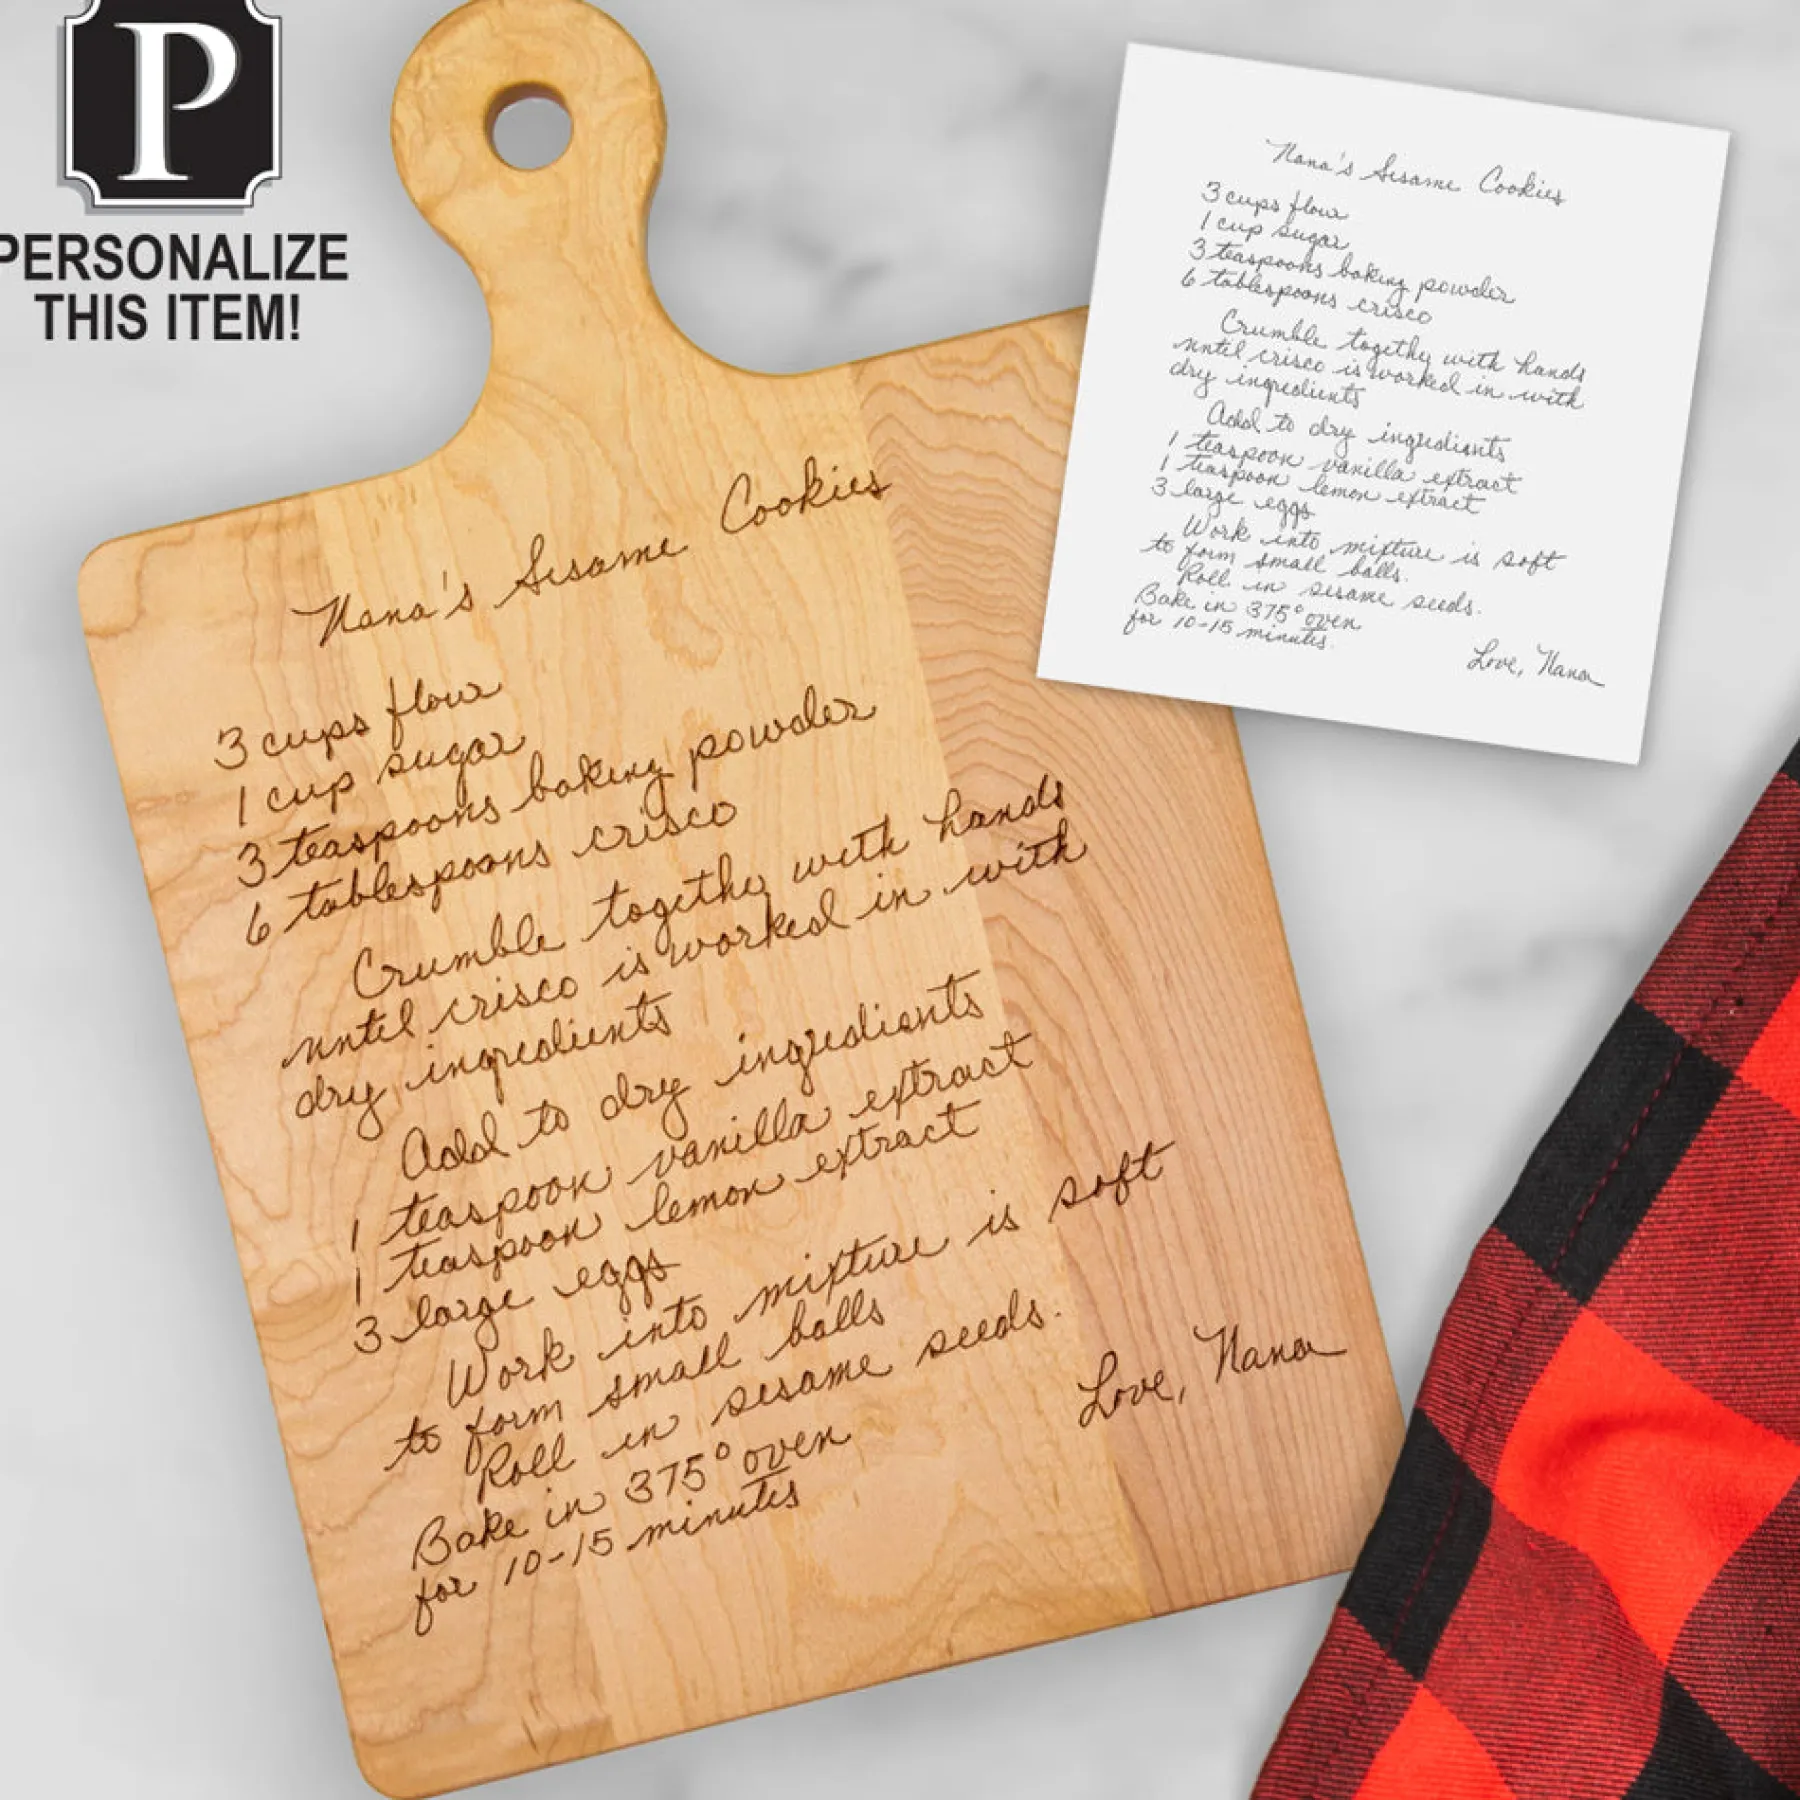 P
PERSONALIZE
THIS ITEM!
Nana's Sesame Cookies
3 cups flour
1 cup sugar
3 teaspoons baking powder
6 tablespoons crisco
Crumble together with hands
until crisco is worked in with
dry ingredients
Add to dry ingredients
1 teaspoon vanilla extract
1 teaspoon lemon extract
3 large eggs
Work into mixture is soft
to form small balls
Roll in sesame seeds.
Bake in 375° oven
for 10-15 minutes
Love, Nana
Nana's Sesame Cookies
3 cups flour
1 cup sugar
3 teaspoons baking powder
6 tablespoons crisco
Crumble together with hands
until crisco is worked in with
dry ingredients
Add to dry ingredients
1 teaspoon vanilla extract
1 teaspoon lemon extract
3 large eggs
Work into mixture is soft
to form small balls.
Roll in sesame seeds.
Bake in 375° oven
for 10-15 minutes.
Love, Nana